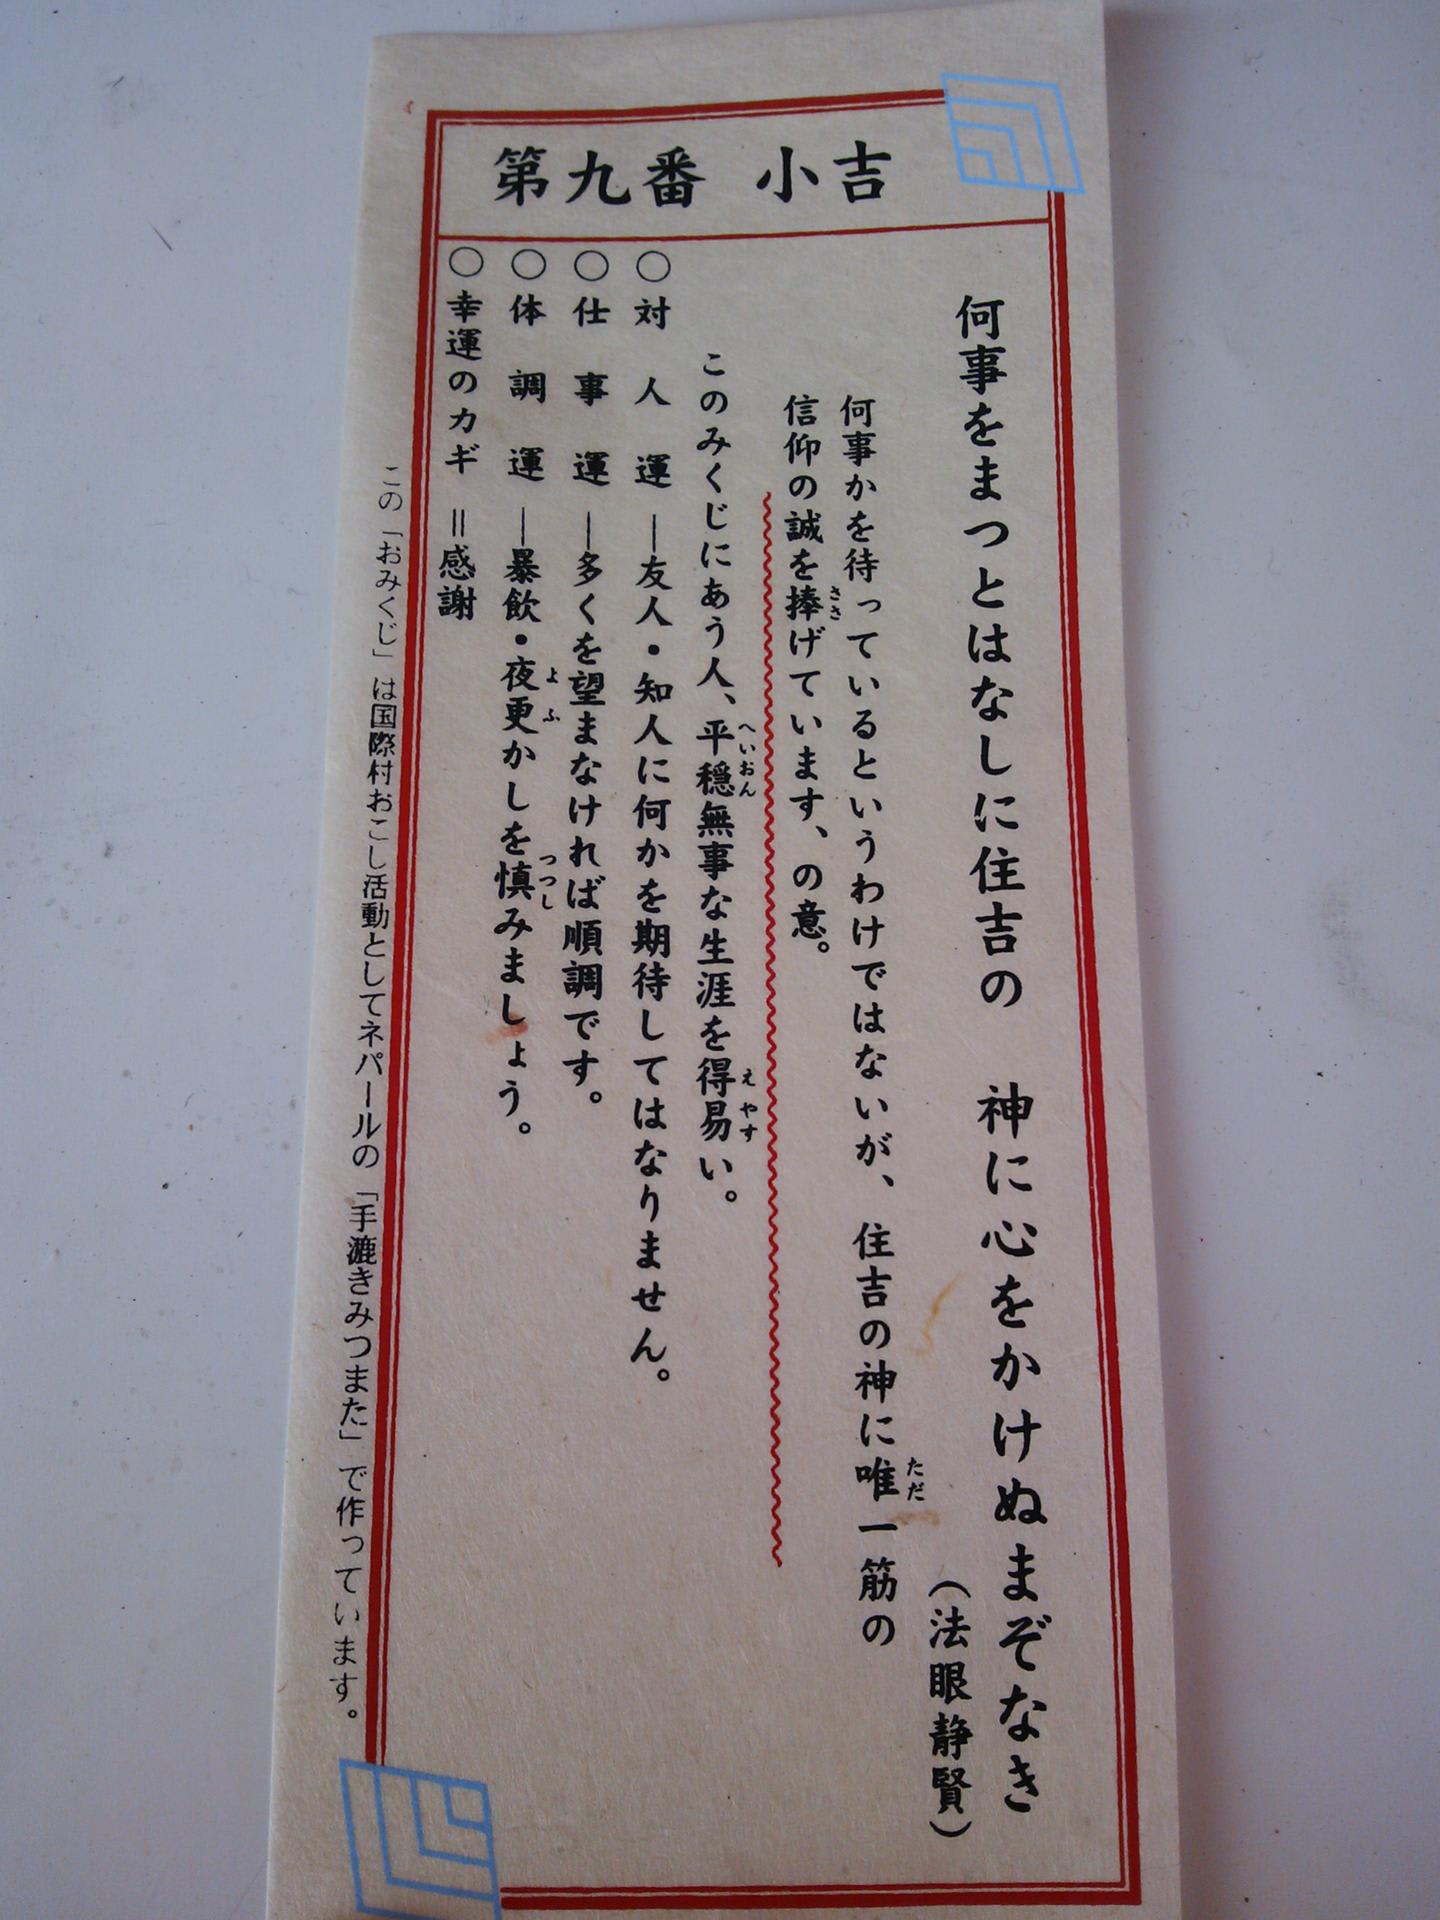 第九番 小吉
何事をまつとはなしに住吉の 神に心をかけぬまぞなき
(法眼静賢)
何事かを待っているというわけではないが、住吉の神に唯一筋の
ただ
信仰の誠を捧げています、の意。
ささ
このみくじにあう人、平穏無事な生涯を得易い。
へいおん えやす
○対人運―友人・知人に何かを期待してはなりません。
○仕事運―多くを望まなければ順調です。
○体調運―暴飲・夜更かしを慎みましょう。
よふ つつし
○幸運のカギ=感謝
この「おみくじ」は国際村おこし活動としてネパールの「手漉きみつまた」で作っています。